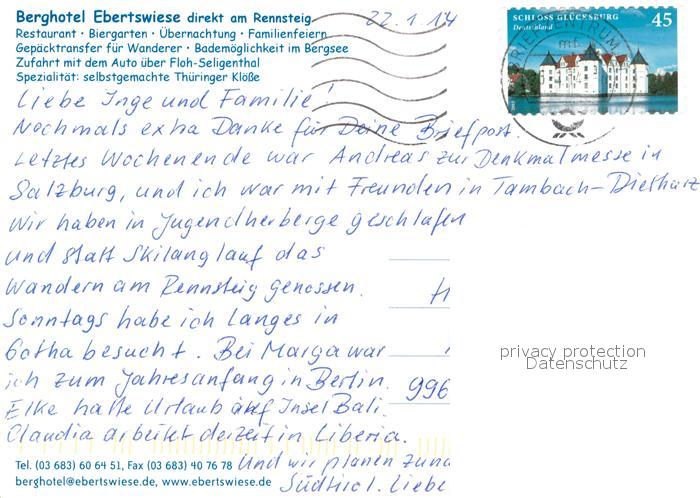 Berghotel Ebertswiese direkt am Rennsteig
Restaurant · Biergarten · Übernachtung · Familienfeiern
Gepäcktransfer für Wanderer · Bademöglichkeit im Bergsee
Zufahrt mit dem Auto über Floh-Seligenthal
Spezialität: selbstgemachte Thüringer Klöße
22.1.14
SCHLOSS GLÜCKSBURG 45
Deutschland
BRIEFZENTRUM
Liebe Inge und Familie!
Nochmals extra Danke für Deine Briefpost.
Letztes Wochenende war Andreas zur Denkmalmesse in
Salzburg, und ich war mit Freunden in Tambach-Dietharz
Wir haben in Jugendherberge geschlafen
und statt Skilanglauf das
Wandern am Rennsteig genossen.
Sonntags habe ich Langes in
Gotha besucht. Bei Marga war
ich zum Jahresanfang in Berlin.
996
Elke hatte Urlaub auf Insel Bali.
Claudia arbeitet derzeit in Liberia.
Und wir planen
Südtirol. Liebe
Tel. (03 683) 60 64 51, Fax (03 683) 40 76 78
berghotel@ebertswiese.de, www.ebertswiese.de
privacy protection
Datenschutz